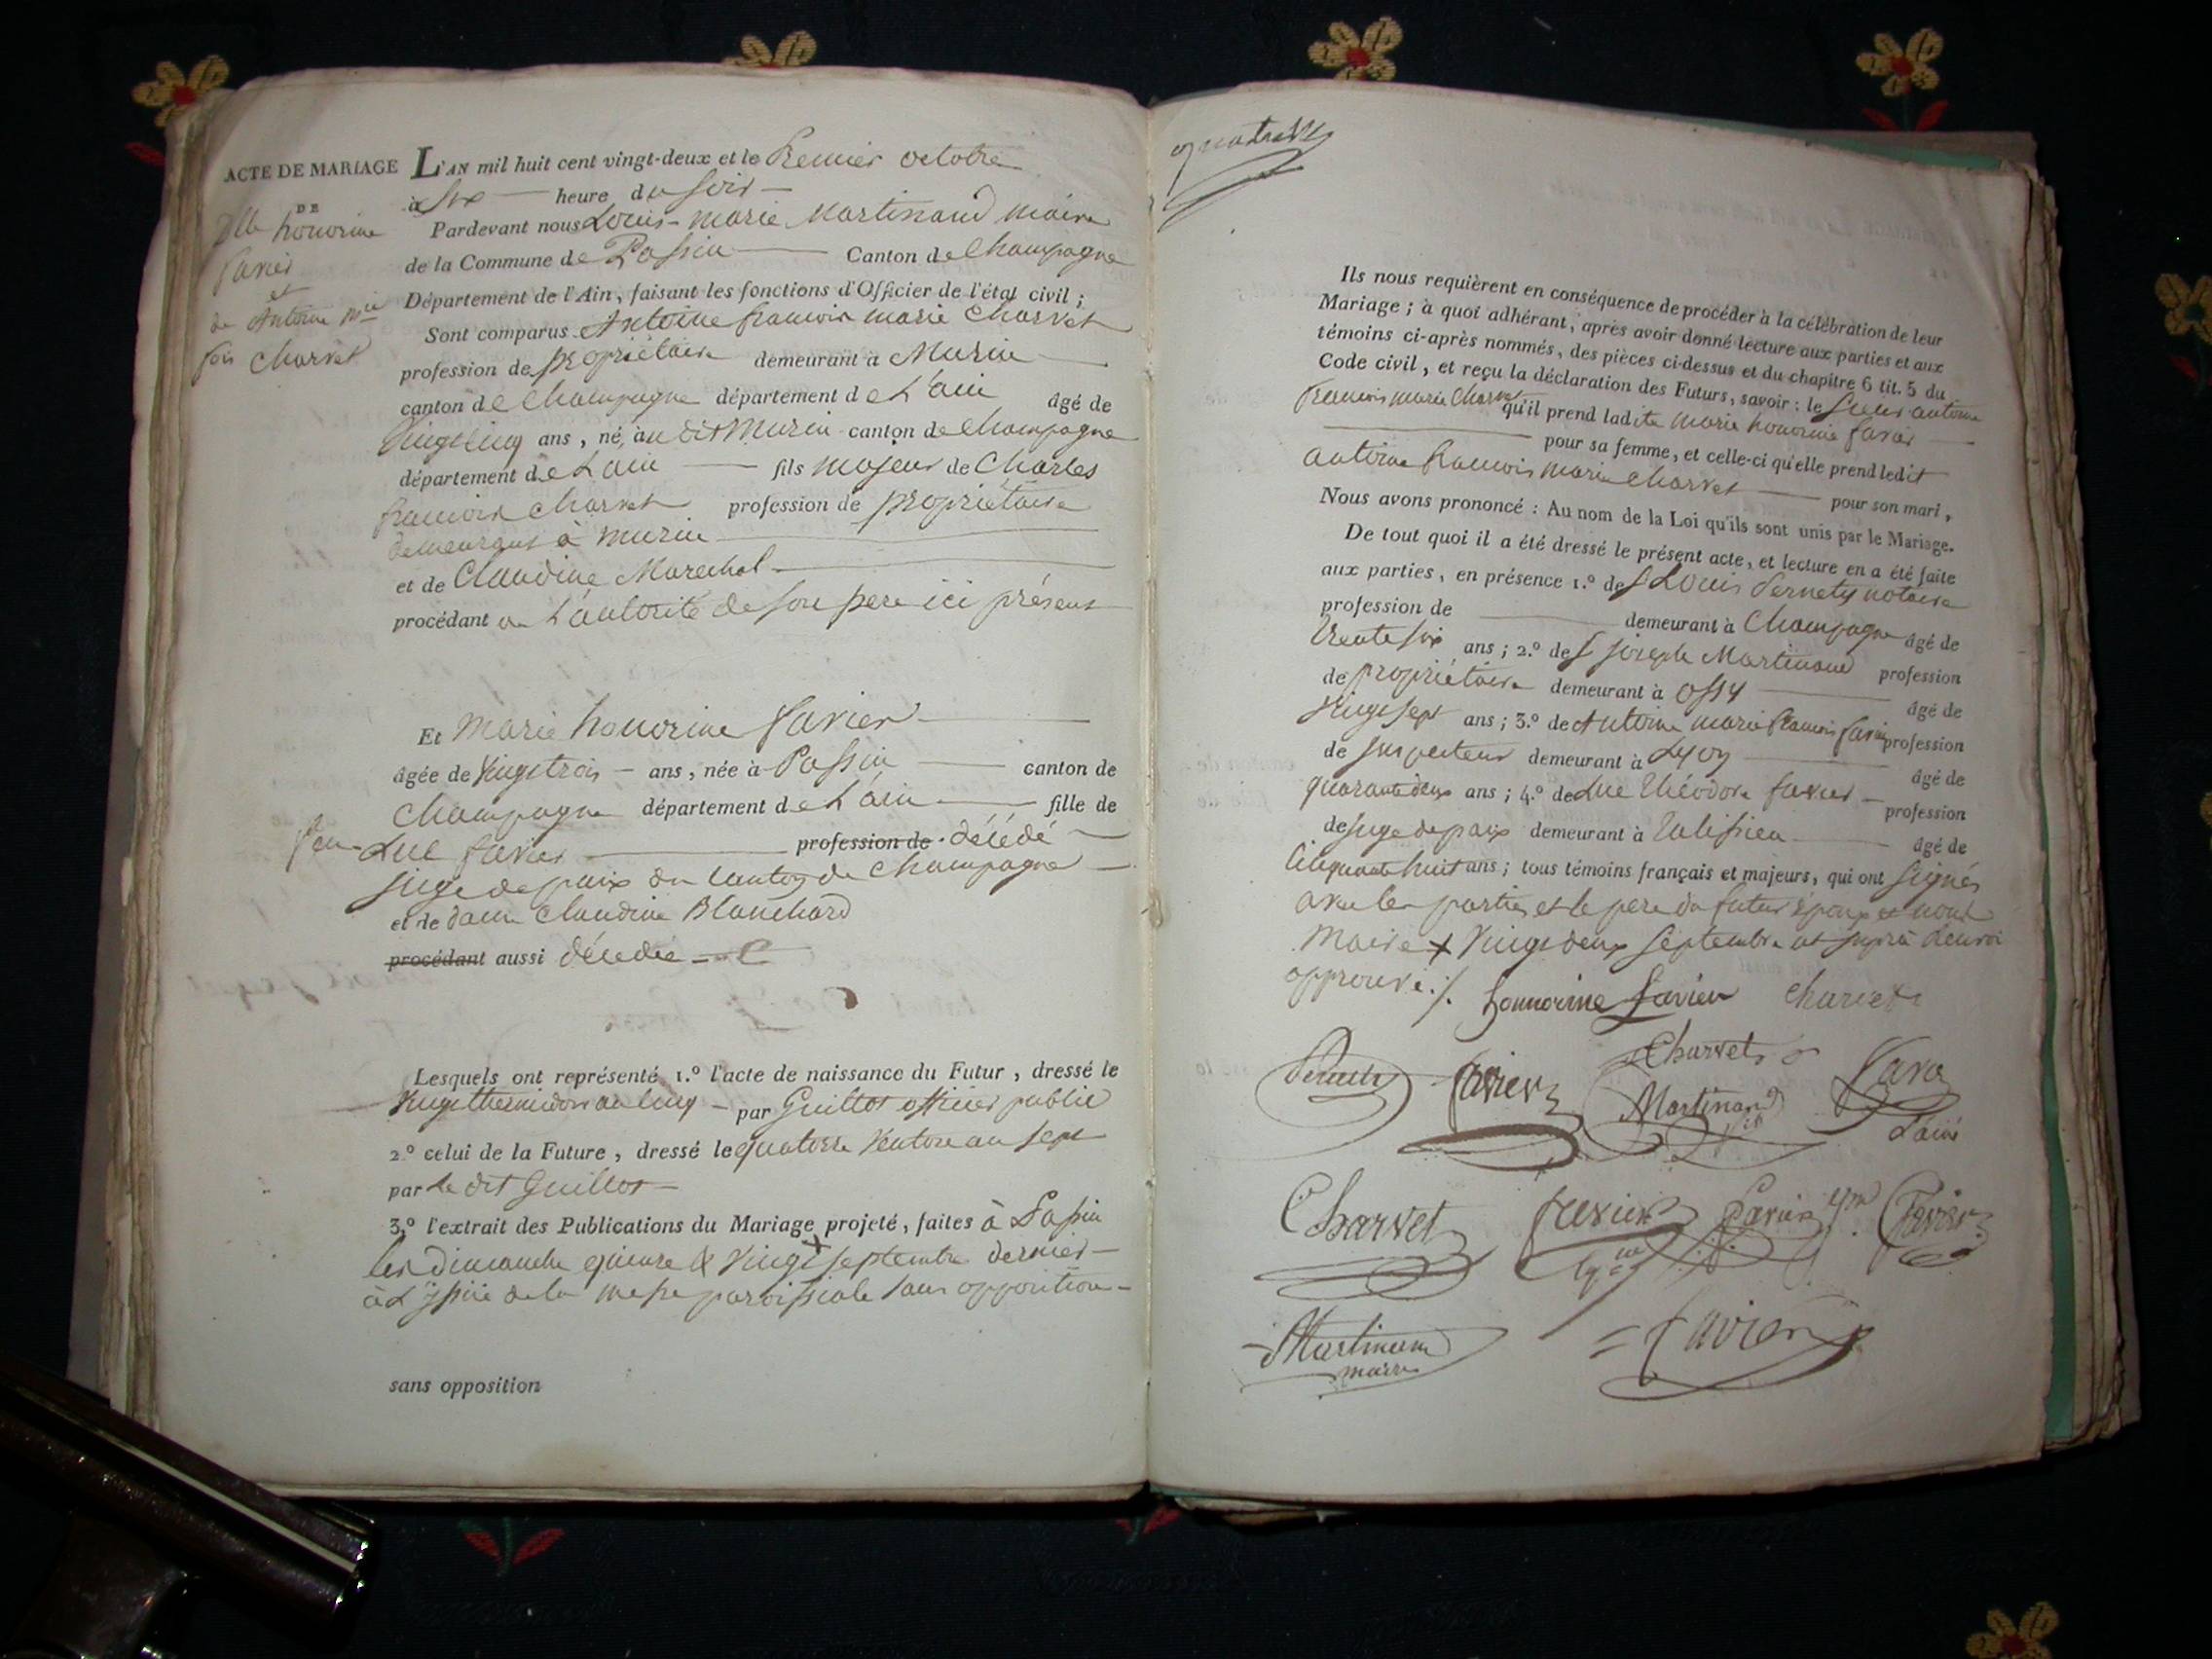 ACTE DE MARIAGE
DE
Dlle honorine
favier
et
de Antoine mie
fois Charvet
L'AN mil huit cent vingt-deux et le Premier octobre
à Six heure du soir
Pardevant nous Louis-marie Martinand maire
de la Commune de Passin Canton de Champagne
Département de l'Ain, faisant les fonctions d'Officier de l'état civil ;
Sont comparus Antoine francois marie Charvet
profession de propriétaire demeurant à Munin
canton de Champagne département de L'ain âgé de
Vingt cinq ans, né, au dit Munin canton de Champagne
département de L'ain fils majeur de Charles
francois Charvet profession de propriétaire
demeurant à munin
et de Claudine Marechal
procédant de L'autorité de son pere ici présent
Et Marie honorine favier
âgée de Vingt trois ans, née à Passin canton de
Champagne département de L'ain fille de
feu Luc favier profession de décédé
juge de paix du Canton de Champagne
et de dame Claudine Blanchard
procédant aussi décédée
Lesquels ont représenté 1.º l'acte de naissance du Futur, dressé le
Vingt thermidor an cinq par Guillot officier public
2.º celui de la Future, dressé le quatorze Ventose an sept
par le dit Guillot
3.º l'extrait des Publications du Mariage projeté, faites à Passin
les dimanche quinze & Vingt septembre dernier
à L'yssue de la messe paroissiale sans opposition
sans opposition
Ils nous requièrent en conséquence de procéder à la célébration de leur
Mariage ; à quoi adhérant, après avoir donné lecture aux parties et aux
témoins ci-après nommés, des pièces ci-dessus et du chapitre 6 tit. 5 du
Code civil, et reçu la déclaration des Futurs, savoir : le sieur antoine
francois marie Charvet qu'il prend ladite marie honorine favier
pour sa femme, et celle-ci qu'elle prend ledit
antoine francois marie Charvet pour son mari,
Nous avons prononcé : Au nom de la Loi qu'ils sont unis par le Mariage.
De tout quoi il a été dressé le présent acte, et lecture en a été faite
aux parties, en présence 1.º de S Louis Pernety notaire
profession de demeurant à Champagne âgé de
trente six ans ; 2.º de S joseph Martinand profession
de propriétaire demeurant à ossy âgé de
Vingt sept ans ; 3.º de Antoine marie francois favier profession
de inspecteur demeurant à Lyon âgé de
quarante deux ans ; 4.º de Luc théodore favier profession
de juge de paix demeurant à Talissieu âgé de
Cinquante huit ans ; tous témoins français et majeurs, qui ont signés
avec les parties et le pere du futur époux et nous
Maire x Vingt deux septembre ut supra
approuvé ./.
honnorine favier Charvet
Charvet
favier
Martinand
L'ainé
Charvet favier favier favier
Martinand
maire
favier